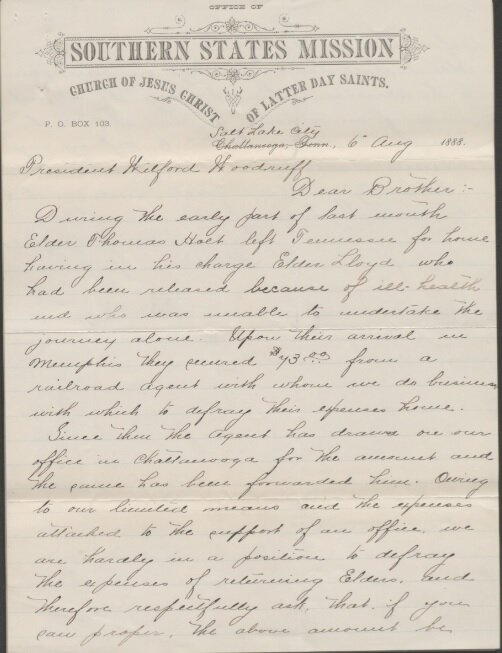 OFFICE OF
SOUTHERN STATES MISSION
CHURCH OF JESUS CHRIST OF LATTER DAY SAINTS.
P. O. BOX 103.
Salt Lake City
Chattanooga, Tenn., 6" Aug 1888.
President Wilford Woodruff
Dear Brother:-
During the early part of last month
Elder Thomas Holt left Tennessee for home
having in his charge Elder Lloyd who
had been released because of ill-health
and who was unable to undertake the
journey alone. Upon their arrival in
Memphis they secured $73.00 from a
railroad agent with whom we do business
with which to defray their expenses home.
Since then the agent has drawn on our
office in Chattanooga for the amount and
the same has been forwarded him. Owing
to our limited means and the expenses
attached to the support of an office, we
are hardly in a position to defray
the expenses of returning Elders, and
therefore respectfully ask, that, if you
can proper, the above amount be